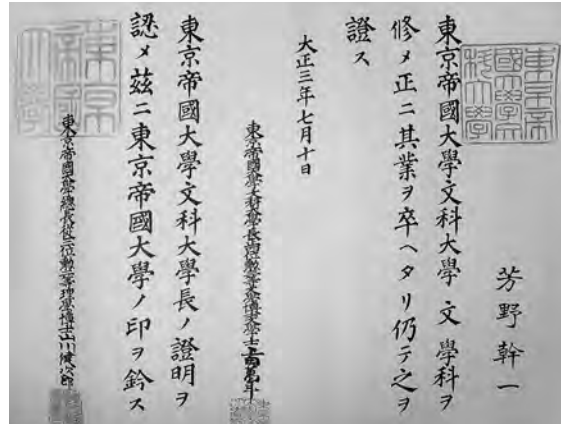 芳野幹一
東京帝國大學文科大學文學科ヲ
修メ正ニ其業ヲ卒ヘタリ仍テ之ヲ
證ス
大正三年七月十日
東京帝國大學文科大學長
東京帝國大學文科大學長ノ證明ヲ
認メ茲ニ東京帝國大學ノ印ヲ鈐ス
東京帝國大學總長從三位勲二等理學博士山川健次郎